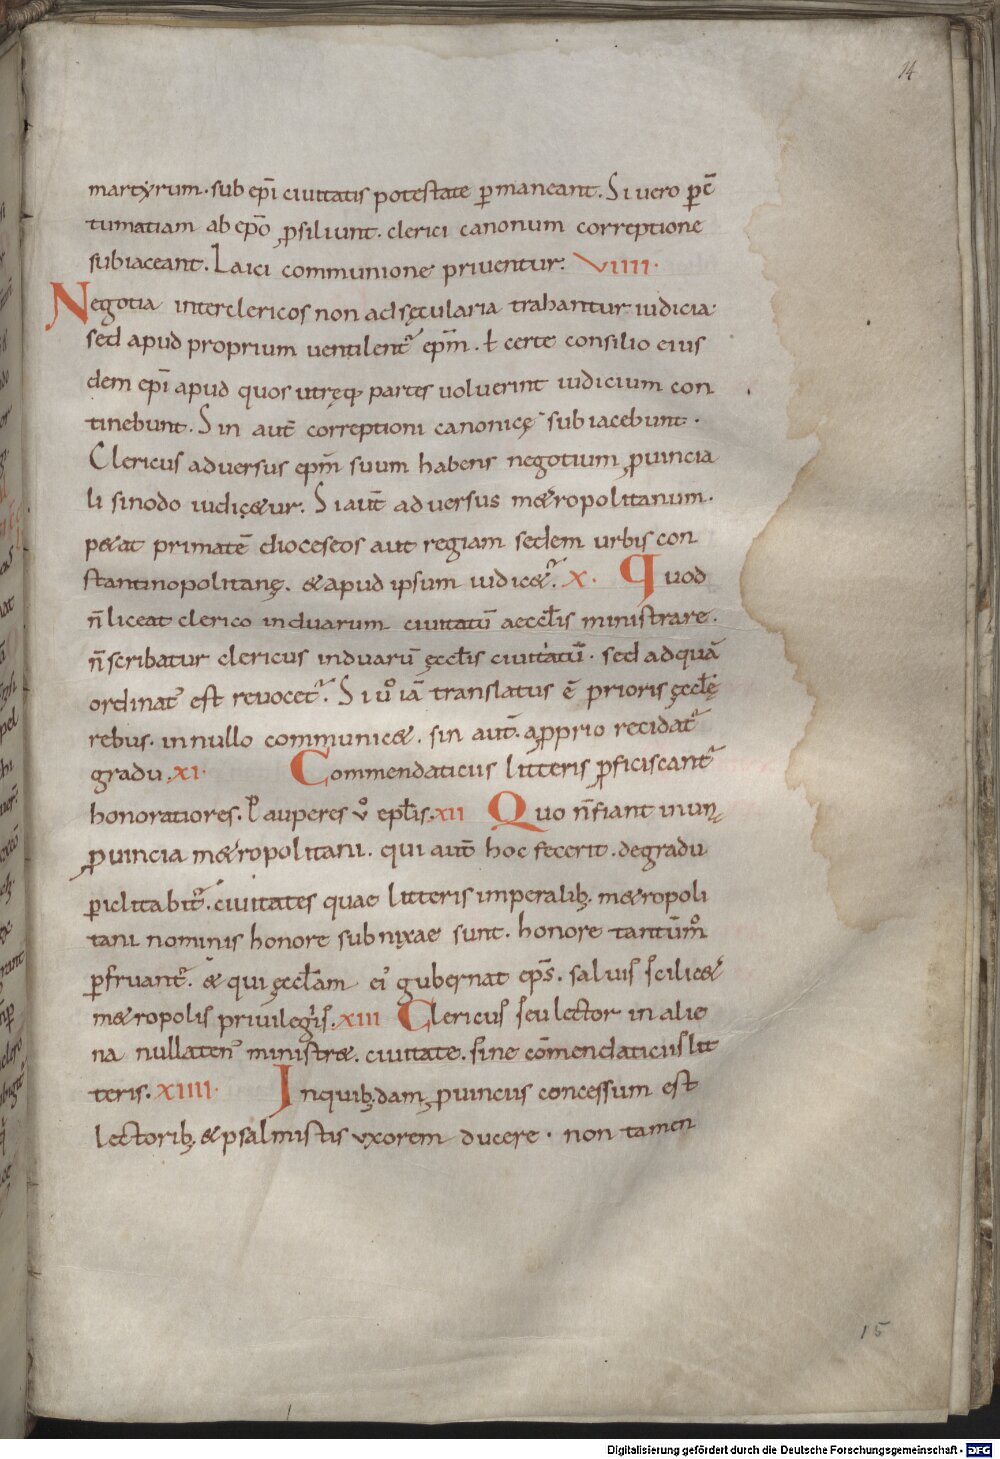 14
martyrum. sub ep̄i ciuitatis potestate ꝑmaneant. Si uero ꝑ c̄
tumatiam ab ep̄o ꝓsiliunt. clerici canonum correptione
subiaceant. Laici communione priuentur. VIIII.
Negotia inter clericos non ad sęcularia trahantur iudicia.
sed apud proprium uentilent᷑ ep̄m. ł certe consilio eius
dem ep̄i apud quos utręq; partes uoluerint iudicium con
tinebunt. Sin aut̄ correptioni canonicę subiacebunt.
Clericus aduersus ep̄m suum habens negotium ꝓuincia
li sinodo iudic&ur. Si aut̄ aduersus m&ropolitanum.
p&at primatē dioceseos aut regiam sedem urbis con
stantinopolitanę. & apud ipsum iudic&᷑. X. Quod
n̄ liceat clerico in duarum ciuitatū aeccl̄is ministrare.
n̄ scribatur clericus in duarū ęccl̄is ciuitatū. sed ad quā
ordinat᾿ est reuocet᷑. Si uͦ iā translatus ē prioris ęccl̄ę
rebus. in nullo communic&. sin aut̄. a ꝓprio recidat᷑
gradu. XI. Commendaticiis litteris ꝓficiscant᷑
honoratiores. Pauperes vͦ epl̄is. XII Quo n̄ fiant in un
ꝓuincia m&ropolitani. qui aut̄ hoc fecerit. de gradu
ꝑiclitabit᷑. ciuitates quae litteris imperalib; m&ropoli
tani nominis honore subnixae sunt. honore tantūmͦ
ꝑfruant᷑. & qui ęccl̄am ei᾿ gubernat ep̄s. saluis scilic&
m&ropolis priuilegiis. XIII Clericus seu lector in alie
na nullaten᾿ ministr&. ciuitate. sine cōmendaticiis lit
teris. XIIII. In quib;dam ꝓuinciis concessum est
lectorib; & psalmistis uxorem ducere. non tamen
15
Digitalisierung gefördert durch die Deutsche Forschungsgemeinschaft - DFG